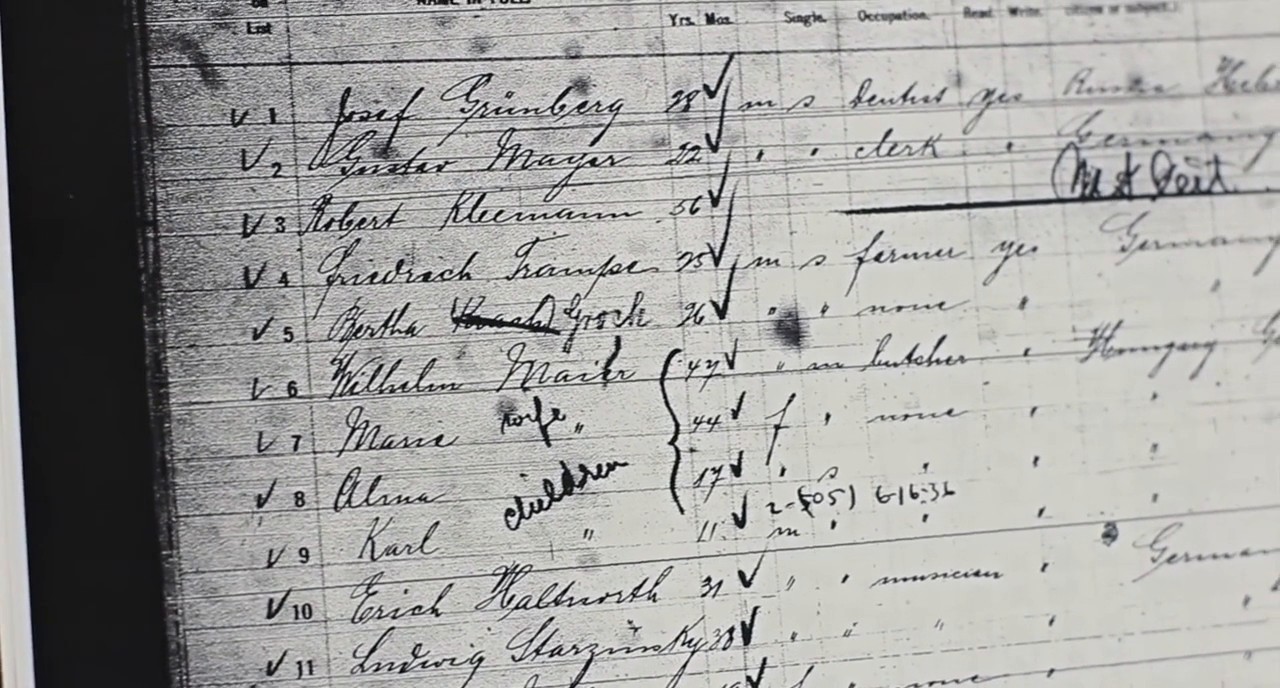 on NAME IN FULL
List Yrs. Mos. Single. Occupation. Read. Write. citizen or subject.)
V 1 Josef Grünberg 28 ✓ m s dentist yes Russia Heb
V 2 Gustav Mayer 22 ✓ " " clerk " Germany
V 3 Robert Kleemann 56 ✓
V 4 Friedrich Trampe 25 ✓ m s farmer yes Germany
V 5 Bertha Groch 26 ✓ " " none "
V 6 Wilhelm Maier 47 ✓ " m butcher " Hungary G
V 7 Marie wife " 44 ✓ f " none " "
V 8 Alma children 17 ✓ " s " " "
2-(051) 6-16-36
V 9 Karl " 11 ✓ m " " " "
V 10 Erich Haltnorth 31 ✓ " " musician " German
V 11 Ludwig Starzinsky 38 ✓ " " " " "
f none